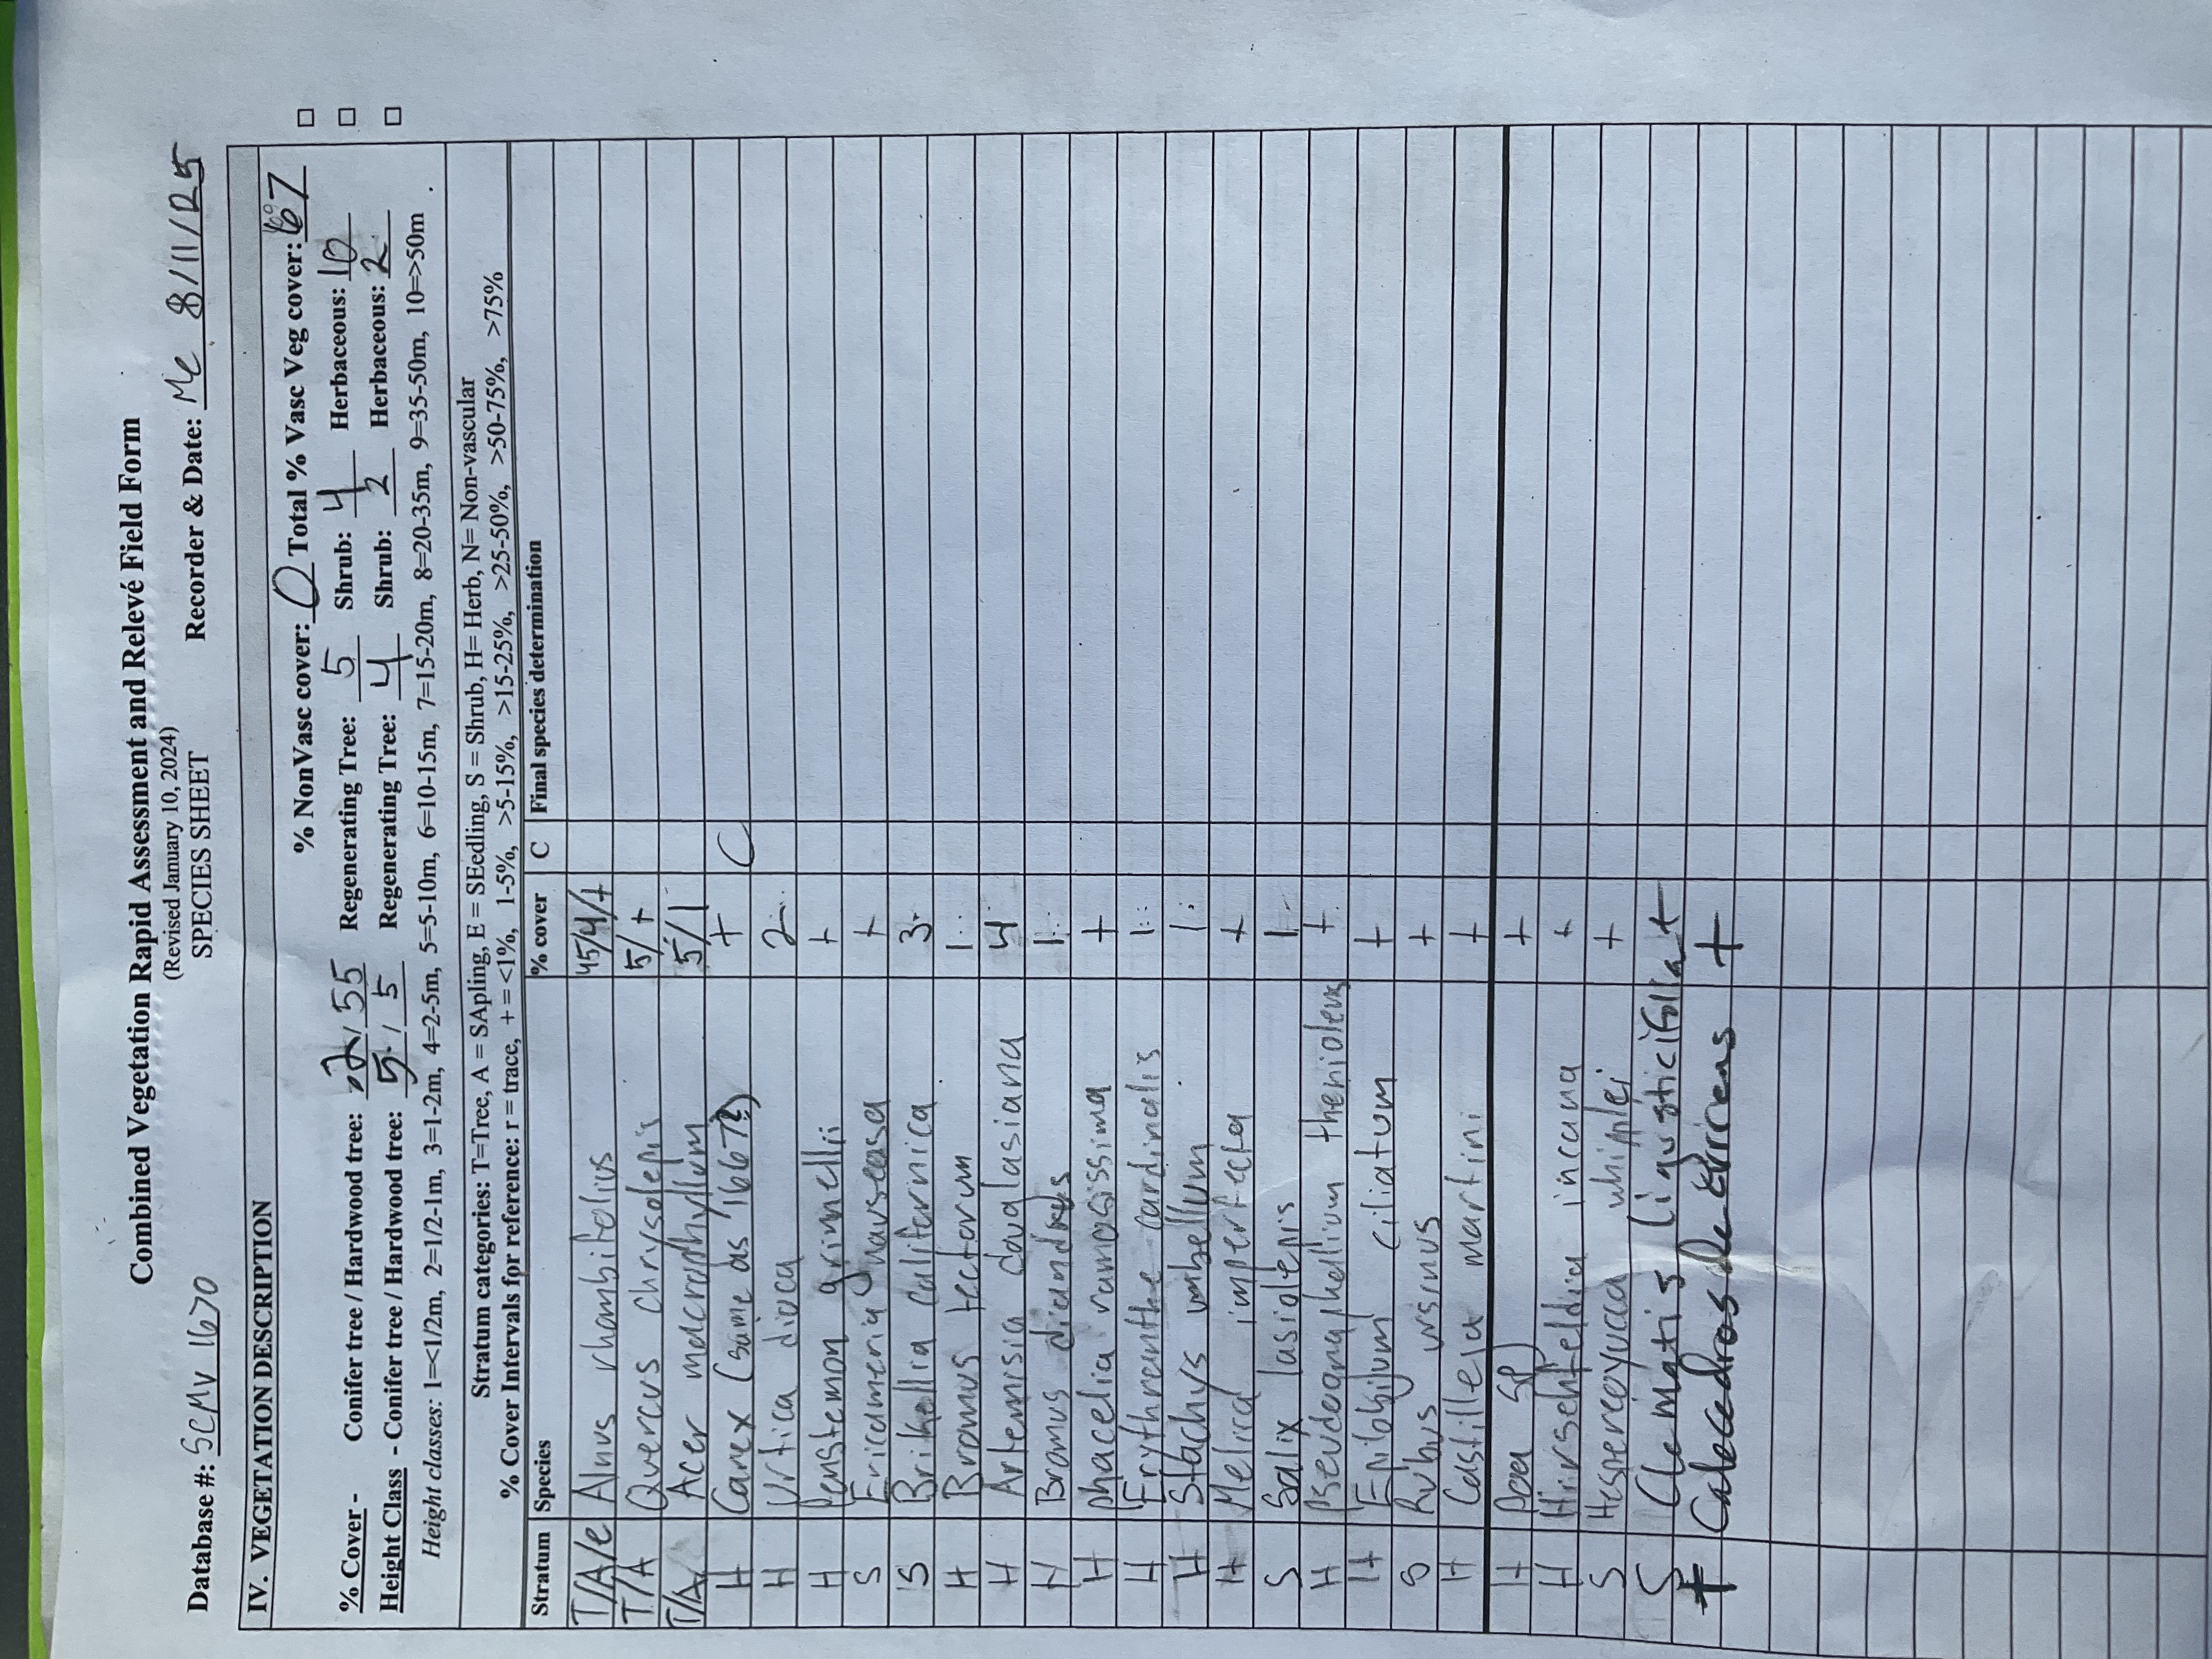 Combined Vegetation Rapid Assessment and Relevé Field Form
(Revised January 10, 2024)
SPECIES SHEET
Database #: SCMV 1670 Recorder & Date: MC 8/11/25
IV. VEGETATION DESCRIPTION
% NonVasc cover: 0 Total % Vasc Veg cover: 67 □
% Cover - Conifer tree / Hardwood tree: / 55 Regenerating Tree: 5 Shrub: 4 Herbaceous: 10 □
Height Class - Conifer tree / Hardwood tree: 5 / 5 Regenerating Tree: 4 Shrub: 2 Herbaceous: 2 □
Height classes: 1=<1/2m, 2=1/2-1m, 3=1-2m, 4=2-5m, 5=5-10m, 6=10-15m, 7=15-20m, 8=20-35m, 9=35-50m, 10=>50m
Stratum categories: T=Tree, A = SApling, E = SEedling, S = Shrub, H= Herb, N= Non-vascular
% Cover Intervals for reference: r = trace, + = <1%, 1-5%, >5-15%, >15-25%, >25-50%, >50-75%, >75%
Stratum Species % cover C Final species determination
T/A/e Alnus rhombifolius 45/4/+
T/A Quercus chrysolepis 5/+
T/A Acer macrophyllum 5/1
H Carex (same as 1667?) + C
H Urtica dioca 2
H Penstemon grinnellii +
S Ericameria nauseosa +
S Brikellia californica 3
H Bromus tectorum 1
H Artemisia douglasiana 4
H Bromus diandrus 1
H phacelia ramosissima +
H Erythreanthe cardinalis 1
H Stachys umbellum 1
H Melica imperfecta +
S Salix lasiolepis 1
H Pseudognaphalium theniolens +
H Epilobium ciliatum +
S Rubus ursinus +
H Castilleja martini +
H Poa sp +
H Hirschfeldia incana +
S Hespereoyucca whipplei +
S Clematis ligusticifolia +
Calocedros decurrens +